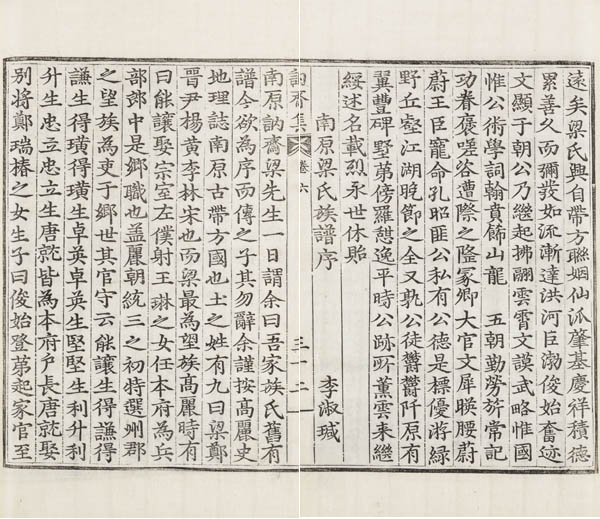 遠矣梁氏興自帶方聯姻仙派肇基慶祥積德
累善久而彌發如流漸達洪河巨渤俊始奮迹
文顯于朝公乃繼起拂翮雲霄文謨武略惟國
惟公術學詞翰賁飾山龍 五朝勤勞旂常記
功眷褒嗟咨遭際之隆冢卿大官文犀睽腰蔚
蔚王臣寵命孔昭匪公私有公德是標優游綠
野丘壑江湖晚節之全又孰公徒欝欝阡原有
翼豐碑墅苐傍羅憇逸平時公跡所薰雲來繼
綏述名載烈永世休貽
南原梁氏族譜序
李淑瑊
訥齋集 卷六 三十二
南原訥齋梁先生一日謂余曰吾家族氏舊有
譜今欲為序而傳之子其勿辭余謹按高麗史
地理誌南原古帶方國也土之姓有九曰梁鄭
晉尹楊黃李林宋也而梁最為望族高麗時有
曰能讓娶宗室左僕射王琳之女任本府為兵
部郎中是鄉職也盖麗朝統三之初特選州郡
之望族為吏于鄉世其官守云能讓生得謙得
謙生得璜得璜生卓英卓英生堅堅生利升利
升生忠立忠立生唐就皆為本府戶長唐就娶
別將鄭瑞椿之女生子曰俊始登苐起家官至